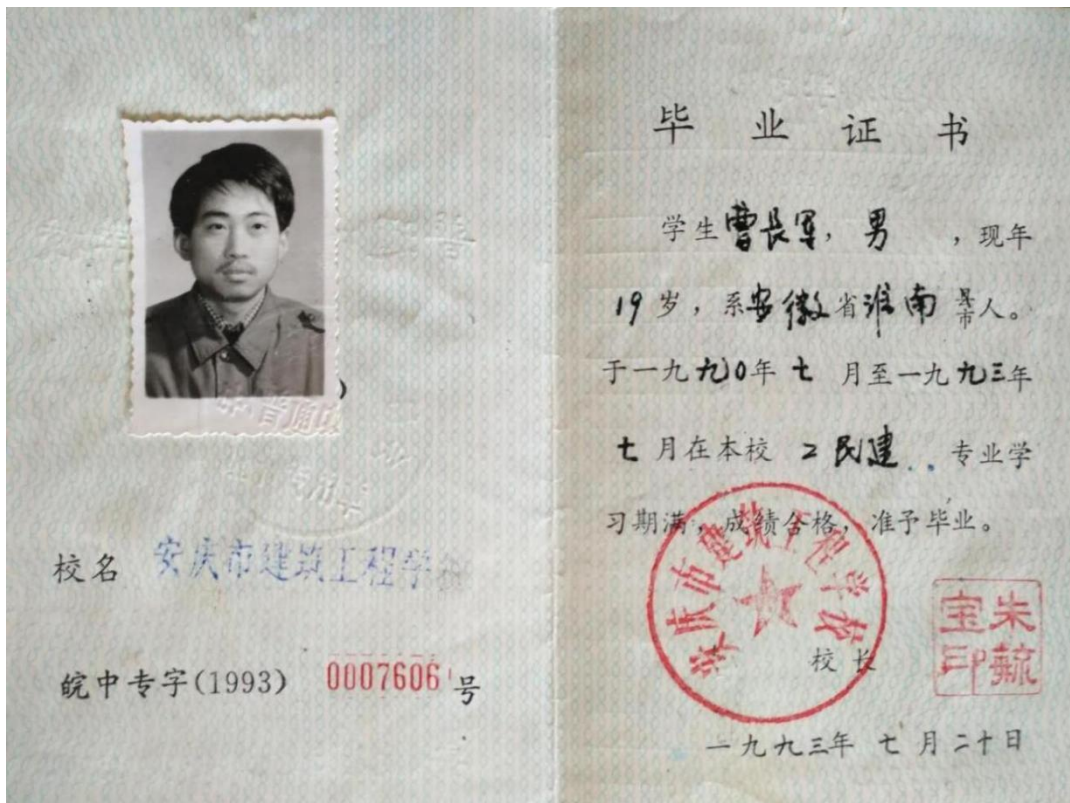 中·普通中
证书专用章
校名 安庆市建筑工程学校
皖中专字(1993) 0007606 号
毕业证书
学生曹长军,男 ,现年
19岁,系安徽省淮南县市人。
于一九九〇年七月至一九九三年
七月在本校工民建..专业学
习期满,成绩合格,准予毕业。
安庆市建筑工程学校
校长
朱毓宝印
一九九三年七月二十日